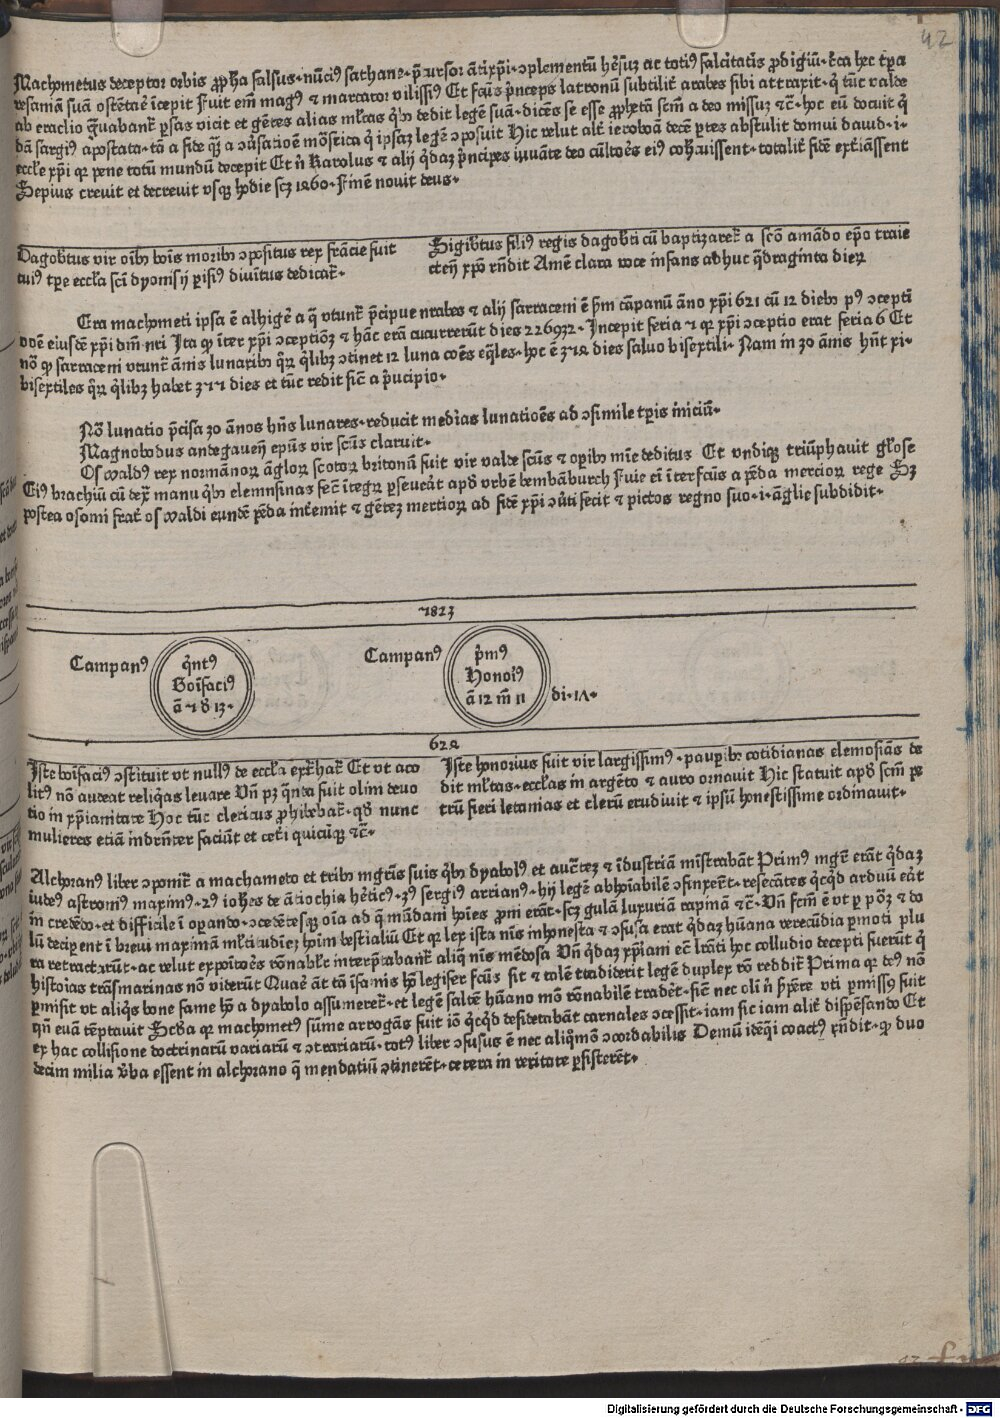 42
Machometus deceptor orbis ꝓpħa falsus · nūciꝰ sathane · p̄cursor ātixp̄i · ↄplementū hēsuꝫ ac totiꝰ falcitatis ꝓdigiū · c̄ca hec tp̄a
vesaniā suā ostētaē īcepit Fuit em̄ magꝰ ⁊ marcator vilissiꝰ Et fcūs p̄nceps latronū subtilit̄ arabes sibi attraxit · q̄ tūc valde
ab eraclio g̃uabant̄ p̄sas vicit et gētes alias ml̄tas q̄bꝫ dedit legē suā · dicēs se esse ꝓphetā scm̄ a deo missuꝫ ⁊c̄ · hoc eū docuit q̄
dā sargiꝰ apostata · tā a fide qꝫ a ↄūsatioē mōstica q̇ ipsaꝫ legē ↄposuit Hic velut alt̄ ieroboā decē ꝑtes abstulit domui dauid · i ·
eccl̄e xp̄i qꝛ pene totū mundū decepit Et n̄ Karolus ⁊ alij q̇daꝫ p̄ncipes iuuāte deo cūltoēs eiꝰ cohꝰuissent · totalit̄ fidē extīaſſent
Sepius creuit et decreuit vsqꝫ hodie scꝫ 1260 · Finē nouit deus ·
Dagobtus vir oībꝫ bōis moribꝫ ↄpositus rex frācie fuit
cuiꝰ tp̄e eccl̄a scī dyonisij p̄isiꝰ diuītus dedicat̄ ·
Sigibtus filiꝰ regis dagobti cū baptizaret̄ a scō amādo ep̄o traie
cteñ xp̄o rn̄dit Amē clara voce infans adhuc q̄draginta dieꝝ
Era machometi ipsa ē alhigē a q̄ vtunt̄ p̄cipue arabes ⁊ alij sarraceni ē p̄m cāpanū āno xp̄i 621 cū 12 diebꝫ pꝰ ↄcepti
onē eiusdē xp̄i dm̄ nr̄i Ita ꝙ īter xp̄i ↄceptiōꝫ ⁊ hāc erā cucurrerūt dies 226932 · Incepit feria ⁊ qꝛ xp̄i ↄceptio erat feria 6 Et
nō ꝙ sarraceni vtunt̄ ānis lunaribꝫ qꝝ q̄libꝫ ↄtinet 12 luna coēs eq̄les · hoc ē 312 dies saluo bisextili · Nam in 30 ānis hn̄t xi ·
bisextiles qꝝ q̄libꝫ habet 311 dies et tūc redit sic̄ a p̄ucipio ·
Nō lunatio p̄cisa 30 ānos hn̄s lunares · reducit medias lunatiōes ad ↄsimile tp̄is iniciū ·
Magnobodus andegaueñ ep̄us vir scūs claruit ·
Oswaldꝰ rex normānoꝝ āgloꝝ scotoꝝ britonū fuit vir valde scūs ⁊ op̄ibꝫ mīe deditus Et vndiqꝫ triūphauit gl̄ose
Eiꝰ brachiū cū dex̄ manu q̄bꝫ elemosinas fec̄ īteḡꝝ ꝑseūāt apd̄ vrbē bembāburch Fuit ei īterfcūs a pēda mercioꝝ rege Sꝫ
postea osomi frat̄ oswaldi eundē pēda īt̄emit ⁊ gētez mertioꝝ ad fidē xp̄i ↄūti fecit ⁊ pictos regno suo · i · āglie subdidit ·
1823
Campanꝰ
q̇ntꝰ
Boīfaciꝰ
ā ⁊ 8 13 ·
Campanꝰ
p̄mꝰ
Honoīꝰ
ā 12 m̄ 11
di · 1Λ ·
622
Iste boīfaciꝰ ↄstituit vt nullꝰ de eccl̄a ext̄hat̄ Et vt aco
litꝰ nō audeat reliq̄as leuare Vn̄ pꝫ q̄nta fuit olim deuo
tio in xp̄ianitate Hoc tūc clericus ꝓhibebat̄ · qd̄ nunc
mulieres etiā indrn̄ter faciūt et cet̄i quicūqꝫ ⁊c̄ ·
Iste honorius fuit vir largissimꝰ · paupibꝫ cotidianas elemosias de
dit ml̄tas · eccl̄as in argēto ⁊ auro ornauit Hic statuit apd̄ scm̄ pe
trū fieri letanias et clerū erudiuit ⁊ ipsū honestissime ordinauit ·
Alchoranꝰ liber ↄponit̄ a machameto et tribꝫ mgr̄is suis q̄bꝫ dyabolꝰ et auc̄tez ⁊ īdustriā mīstrabāt Primꝰ mgr̄ erāt q̇daꝫ
iudeꝰ astromꝰ maximꝰ · 2ꝰ ioh̄es de ātiochia hēticꝰ · 3ꝰ sergiꝰ arrianꝰ · hij legē abhoīabilē ↄfinxerēt · resecātes q̇cq̇d arduū eāt
in credēdo · et difficile ī oꝑando · ↄcedētesqꝫ oīa ad q̄ mūdani hoīes ꝓni erāt · scꝫ gulā luxuriā rapinā ⁊c̄ · Vn̄ fcm̄ ē vt ꝑ pōꝫ ⁊ do
lū deciperent ī breui maximā ml̄titudiez hoīm bestialiū Et qꝛ lex ista nīs inhonesta ⁊ ↄfusa erat q̇daꝫ hūana verecūdia ꝑmoti plu
ra retractarūt · ac velut expoītoēs rōnabl̄r interp̄tabant̄ aliq̄ nīs mēdosa Vn̄ q̇daꝫ xp̄iani ec̄ lr̄ati hoc colludio decepti fuerūt q̇
histoias trāsmarinas nō viderūt Quaē āt tā īsanis hō legifer fcūs sit ⁊ tolē tradiderit legē duplex rō reddit̄ Prima qꝛ deꝰ nō
ꝑmisit vt aliq̇s bone fame hō a dyabolo assumeret̄ · et legē saltē hūano mō rōnabilē tradēt · sic̄ nec oli n̄ p̄pēre vti ꝑmissꝰ fuit
qn̄ euā tēptauit Scd̄a qꝛ machometꝰ sūme arrogās fuit iō q̇cq̇d desidetabāt carnales ↄcessit · iam sic iam alit̄ dispēsando Et
ex hac collisione doctrinarū variarū ⁊ ↄtrariarū · totꝰ liber ↄfusus ē nec aliq̇mō ↄcordabilis Demū idēq̄i coactꝰ rn̄dit · ꝙ duo
decim milia v̄ba essent in alchorano q̄ mendatiū ↄtinerēt · cetera in veritate ꝑsisterēt ·
Digitalisierung gefördert durch die Deutsche Forschungsgemeinschaft - DFG